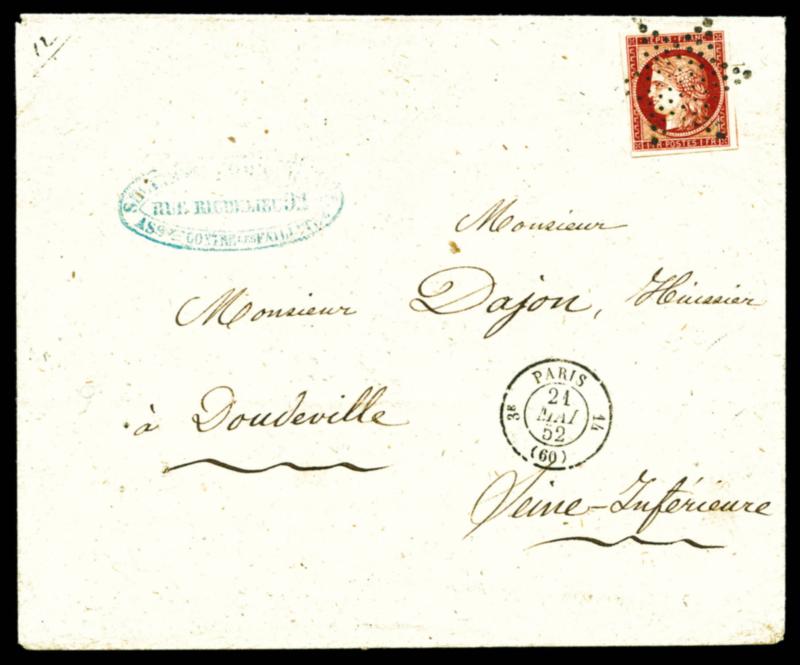 12
REPUB FRANC
1 FR POSTES 1 FR
RUE RICHELIEU 92
ASSce CONTRE LES FAILLITES
Monsieur
Monsieur Dajon, Huissier
à Doudeville
PARIS
3E 21 14
MAI
52
(60)
Seine-Inférieure